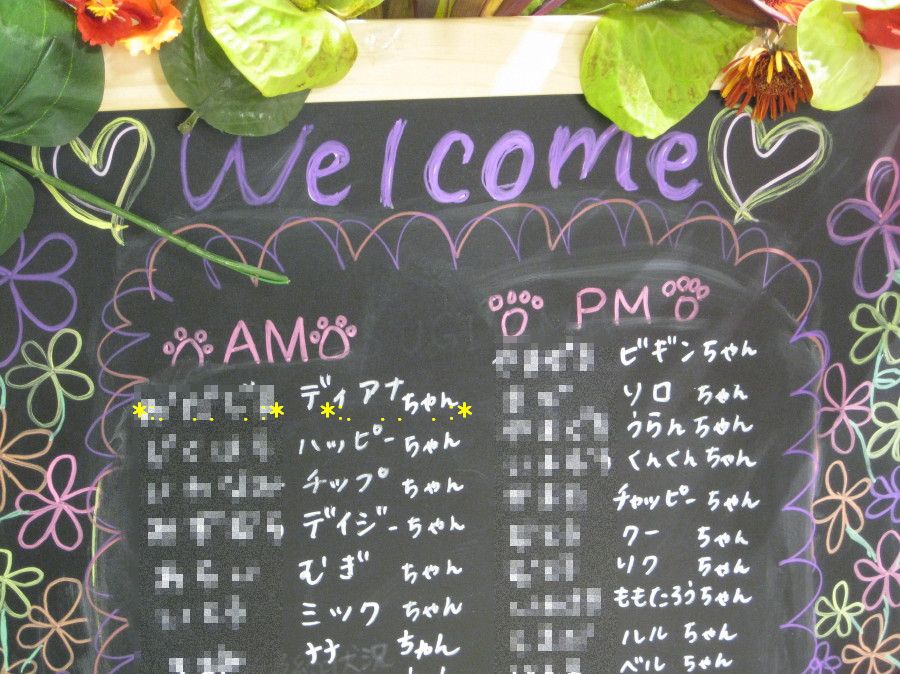 Welcome
AM
ディアナちゃん
ハッピーちゃん
チップちゃん
デイジーちゃん
むぎちゃん
ミックちゃん
ナナちゃん
PM
ビギンちゃん
ソロちゃん
うらんちゃん
くんくんちゃん
チャッピーちゃん
クーちゃん
リクちゃん
ももたろうちゃん
ルルちゃん
ベルちゃん